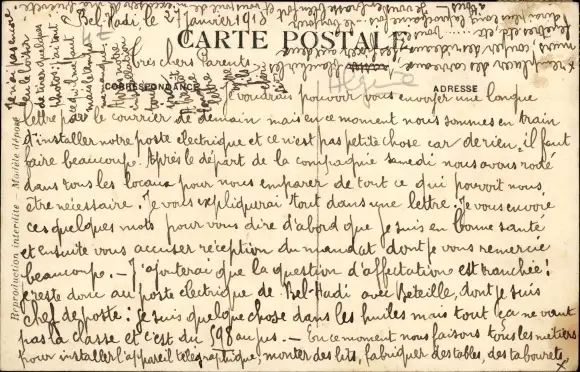 Bel-Hadi le 27 janvier 1918
CARTE POSTALE
Très chers Parents.
CORRESPONDANCE
ADRESSE
Je voudrais pouvoir vous envoyer une longue
lettre par le courrier de demain mais en ce moment nous sommes en train
d'installer notre poste électrique et ce n'est pas petite chose car de rien, il faut
faire beaucoup. Après le départ de la compagnie samedi nous avons rodé
dans tous les locaux pour nous emparer de tout ce qui pouvait nous
être nécessaire. Je vous expliquerai tout dans une lettre. Je vous envoie
ces quelques mots pour vous dire d'abord que je suis en bonne santé
et ensuite vous accuser réception du mandat dont je vous remercie
beaucoup. — J'ajouterai que la question d'affectations est tranchée!
c'reste donc au poste électrique de Bel-Hadi avec Béteille, dont je suis
chef de poste: je suis quelque chose dans les huiles mais tout ça ne vaut
pas la classe et c'est du 598 au jus. — En ce moment nous faisons tous les métiers
pour installer l'appareil télégraphique, monter des lits, fabriquer des tables, des tabourets x
Je n'ai pas encore
eu le loisir
de tirer quelques
photos: j'ai
Reproduction interdite - Modèle déposé